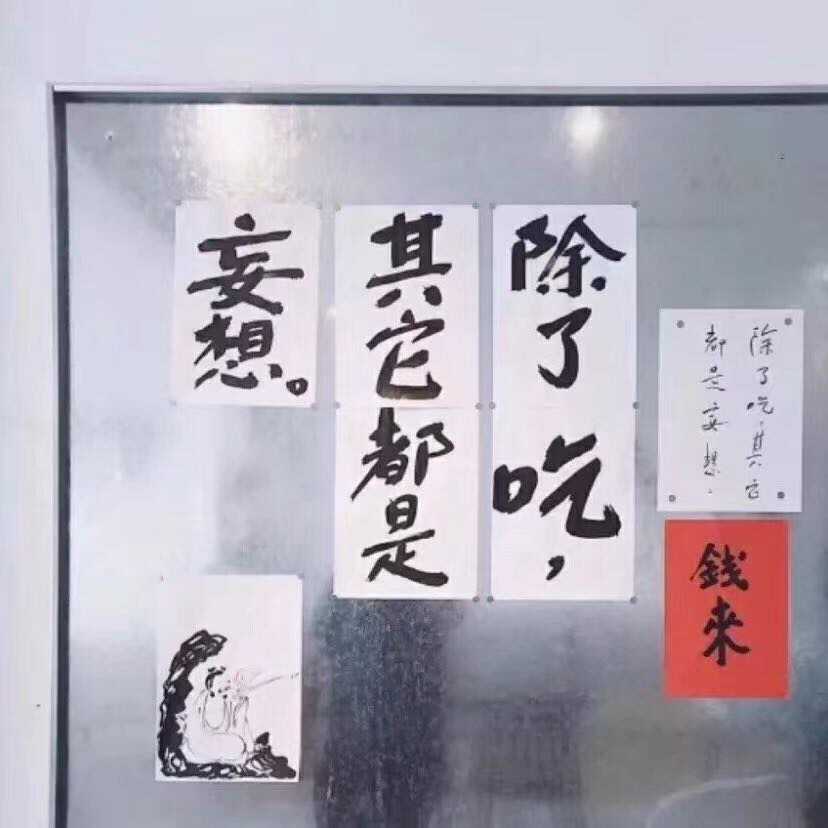 除了吃，
其它都是
妄想。
除了吃，其它
都是妄想。
錢來